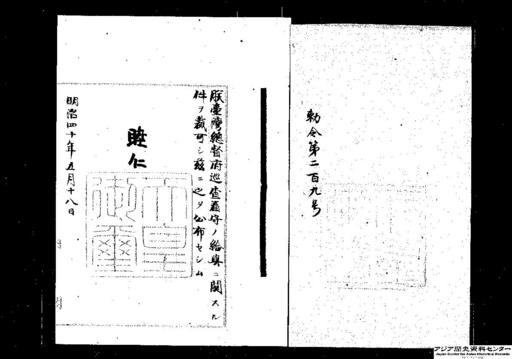 勅令第二百九号
朕臺灣總督府巡査看守ノ給與ニ關スル
件ヲ裁可シ玆ニ之ヲ公布セシム
睦仁
天皇
御璽
明治四十年五月十八日
アジア歴史資料センター
Japan Center for Asian Historical Records